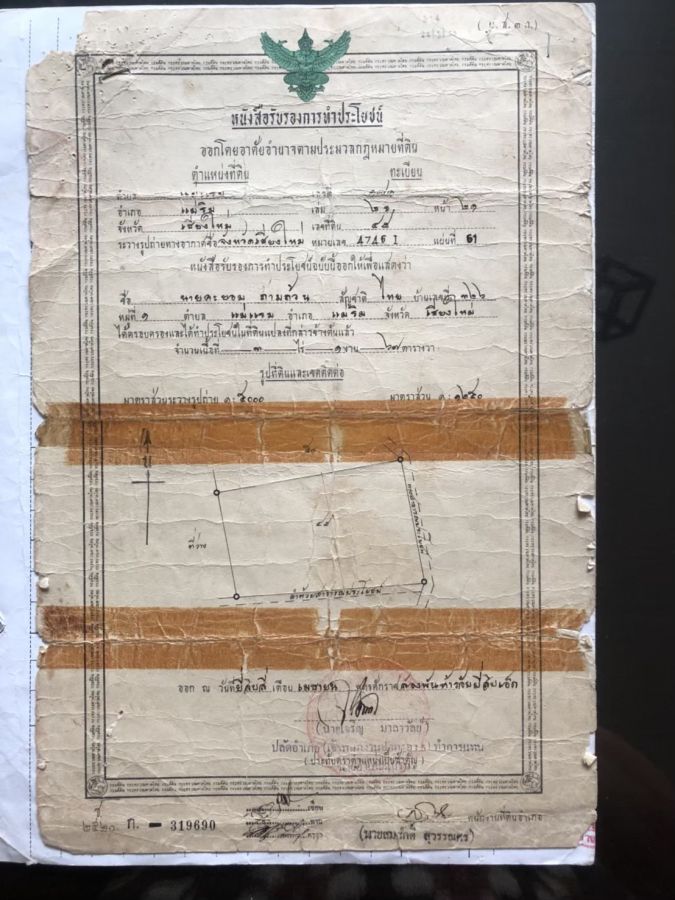 (น.ส.๓ ก.)
หนังสือรับรองการทำประโยชน์
ออกโดยอาศัยอำนาจตามประมวลกฎหมายที่ดิน
ตำแหน่งที่ดิน ทะเบียน
ตำบล แม่แรม เลขที่
อำเภอ แม่ริม เล่ม หน้า ๒๑
จังหวัด เชียงใหม่ เลขที่ดิน ๔๕
ระวางรูปถ่ายทางอากาศชื่อ จังหวัดเชียงใหม่ หมายเลข 4746 I แผ่นที่ 61
หนังสือรับรองการทำประโยชน์ฉบับนี้ออกให้เพื่อแสดงว่า
ชื่อ นาย สัญชาติ ไทย บ้านเลขที่
หมู่ที่ ๑ ตำบล แม่แรม อำเภอ แม่ริม จังหวัด เชียงใหม่
ได้ครอบครองและได้ทำประโยชน์ในที่ดินแปลงที่กล่าวข้างต้นแล้ว
จำนวนเนื้อที่ ๓ ไร่ ๑ งาน ๖๗ ตารางวา
รูปที่ดินและเขตติดต่อ
มาตราส่วนระวางรูปถ่าย ๑:๕๐๐๐ มาตราส่วน ๑:๑๒๕๐
น
๔๕
ที่ว่าง
ลำห้วยสาธารณประโยชน์
ออก ณ วันที่ ยี่สิบสี่ เดือน เมษายน พุทธศักราช สองพันห้าร้อยยี่สิบเอ็ด
(นายเจริญ มาลาวัลย์)
ปลัดอำเภอ (เจ้าพนักงานปกครอง ๕) ทำการแทน
(ประทับตราตำแหน่งเป็นสำคัญ)
เขียน
ทาน
ตรวจ
๒๕๒๐ ก. - 319690
พนักงานที่ดินอำเภอ
(นายสมศักดิ์ สุวรรณศร)